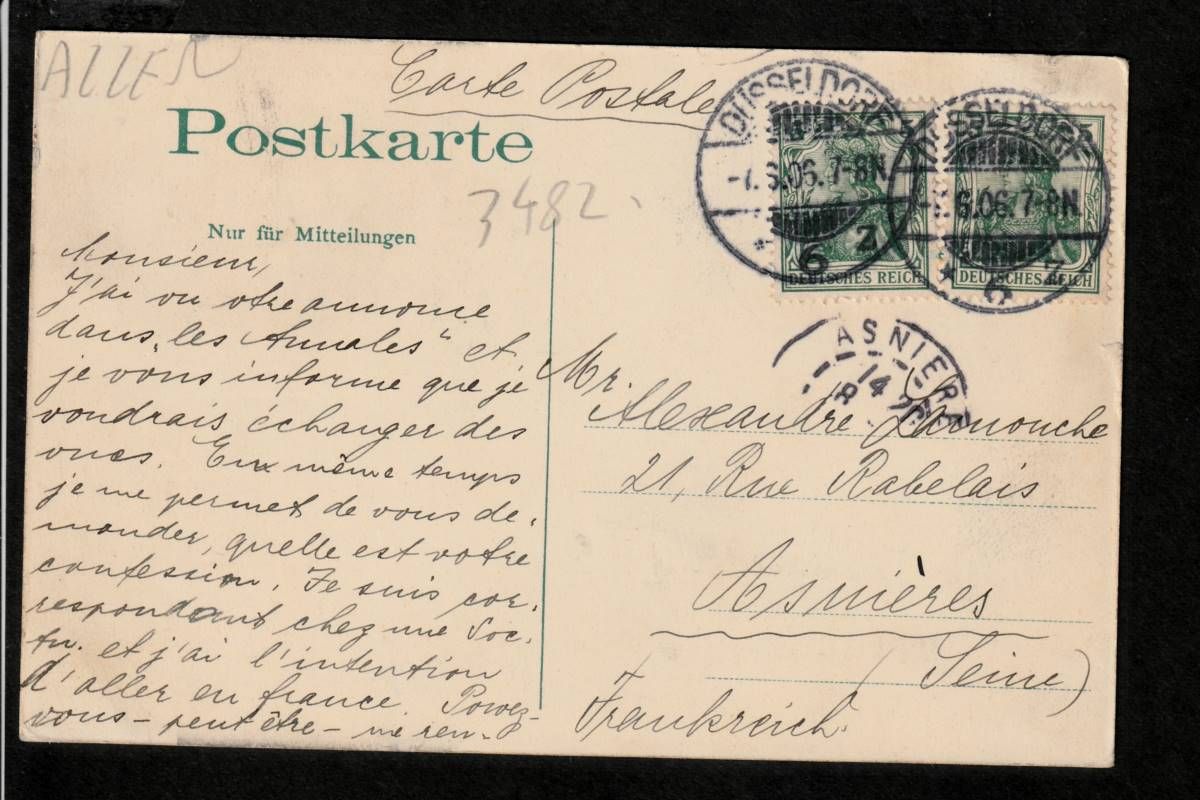 ALLEN
Carte Postale
Postkarte
3482.
Nur für Mitteilungen
DÜSSELDORF
6.06.7-8N.
6 z
DEUTSCHES REICH
DÜSSELDORF
6.06.7-8N.
6 z
DEUTSCHES REICH
ASNIERE
14
8
Monsieur,
J'ai vu otre annonce
dans „les Annales" et
je vous informe que je
voudrais échanger des
vues. En même temps
je me permet de vous de-
mander, quelle est votre
confession. Je suis cor-
respondant chez une Soc.
et j'ai l'intention
d'aller en france. Pouvez-
vous - peut être - me ren-
Mr.
Alexandre Lamouche
21, Rue Rabelais
Asnières
(Seine)
Frankreich.